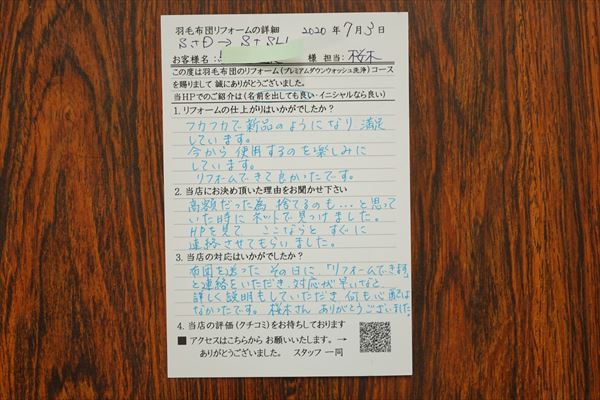 羽毛布団リフォームの詳細 2020 年 7月 3 日
S+D → S+SLL
お客様名: 様 担当: 桜木
この度は羽毛布団のリフォーム(プレミアムダウンウォッシュ洗浄)コース
を賜りまして 誠にありがとうございました。
当HPでのご紹介は(名前を出しても良い・イニシャルなら良い)
1. リフォームの仕上がりはいかがでしたか?
フカフカで新品のようになり 満足
しています。
今から 使用するのを楽しみに
しています。
リフォームできて良かったです。
2. 当店にお決め頂いた理由をお聞かせ下さい
高額だった為 捨てるのも…と思って
いた時にネットで見つけました。
HPを見て ここならと すぐに
連絡させてもらいました。
3. 当店の対応はいかがでしたか?
布団を送った その日に「リフォームできます」
と連絡をいただき 対応が早いなと
詳しく説明もしていただき 何も心配は
なかったです。 桜木さん ありがとうございました。
4. 当店の評価(クチコミ)をお待ちしております
■ アクセスはこちらから お願いいたします。 →
ありがとうございました。 スタッフ 一同